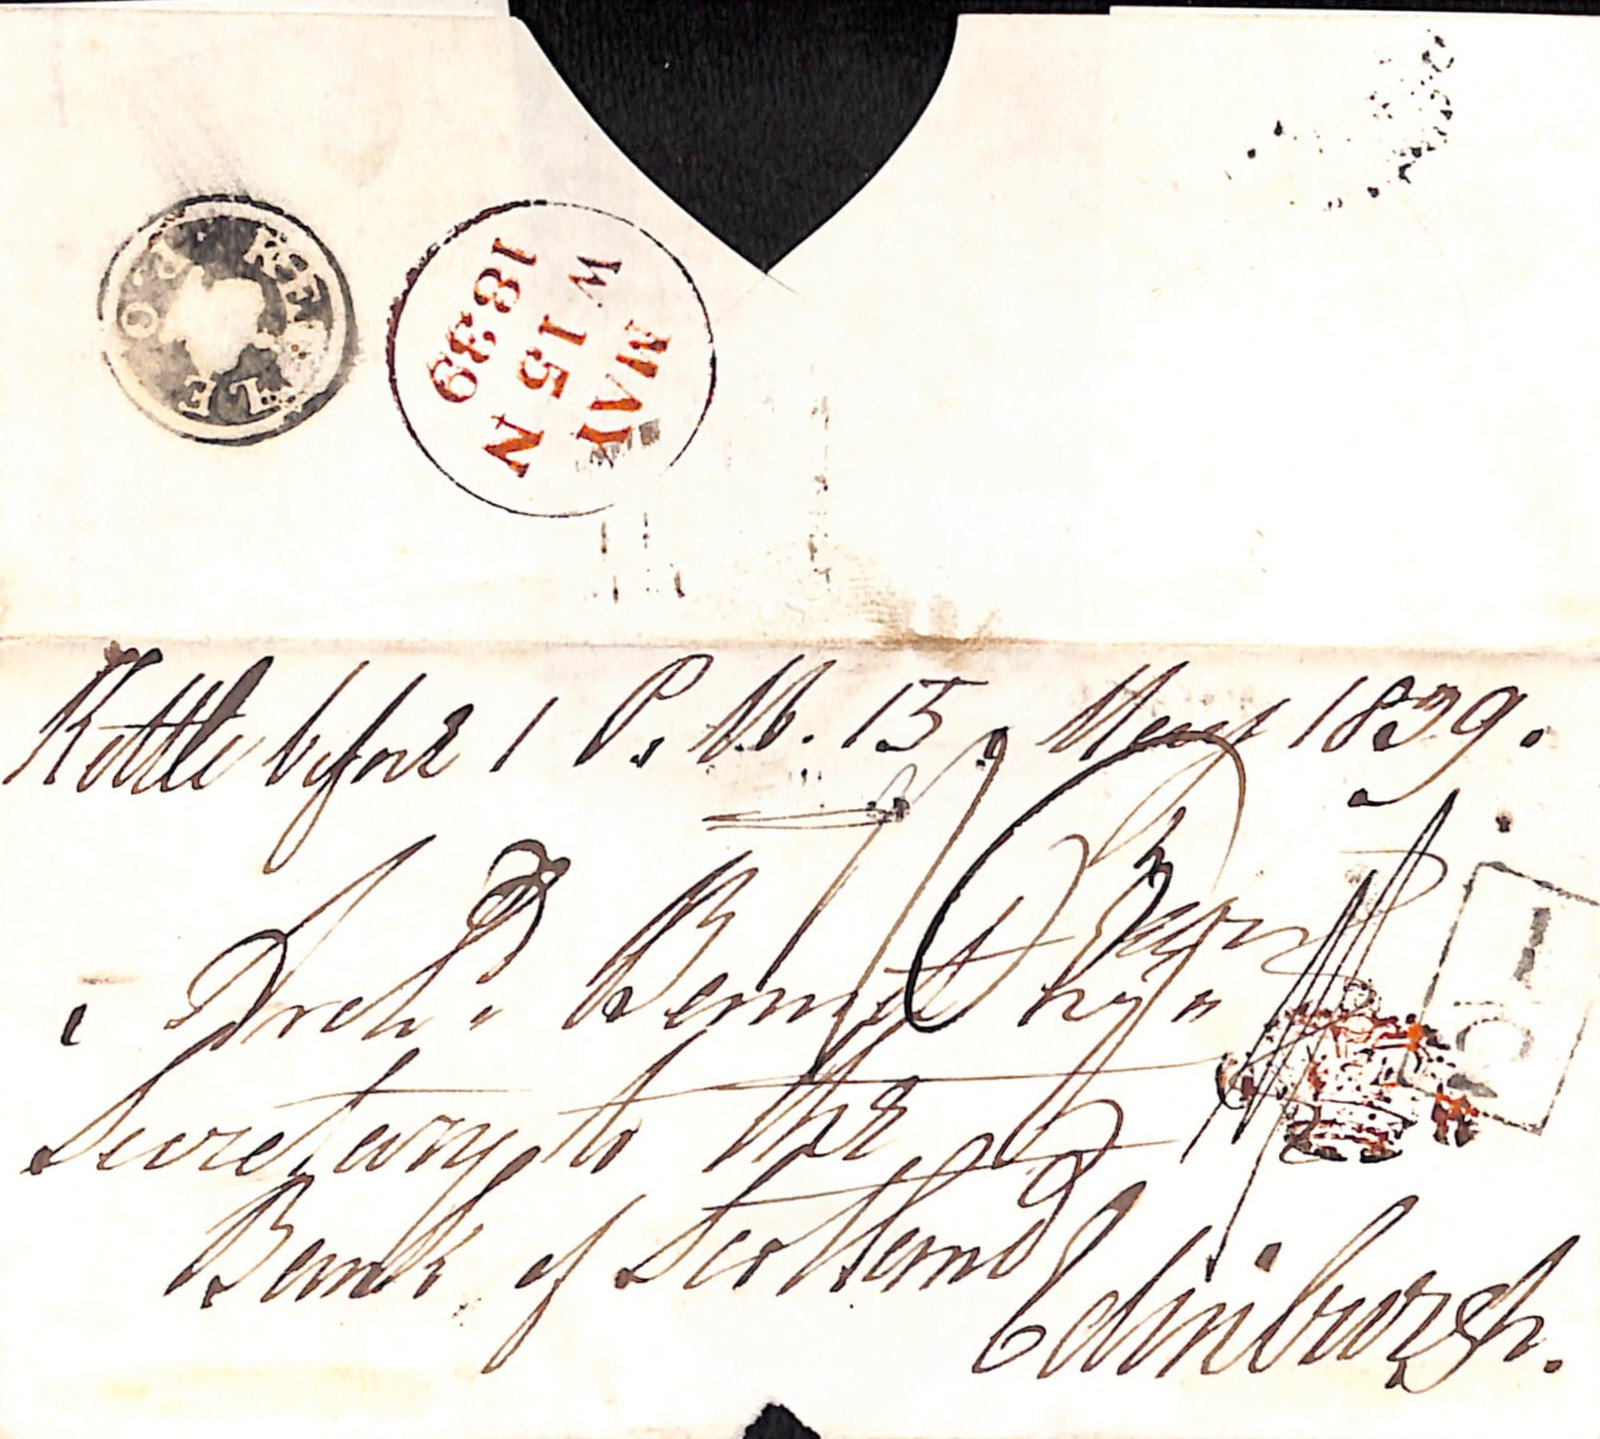 P.O
MAY
W. 15 N
1839
Kettle before 1 P. M. 15. May 1839.
Archd. Bennet Esqr
Secretary to the
Bank of Scotland
Edinburgh.